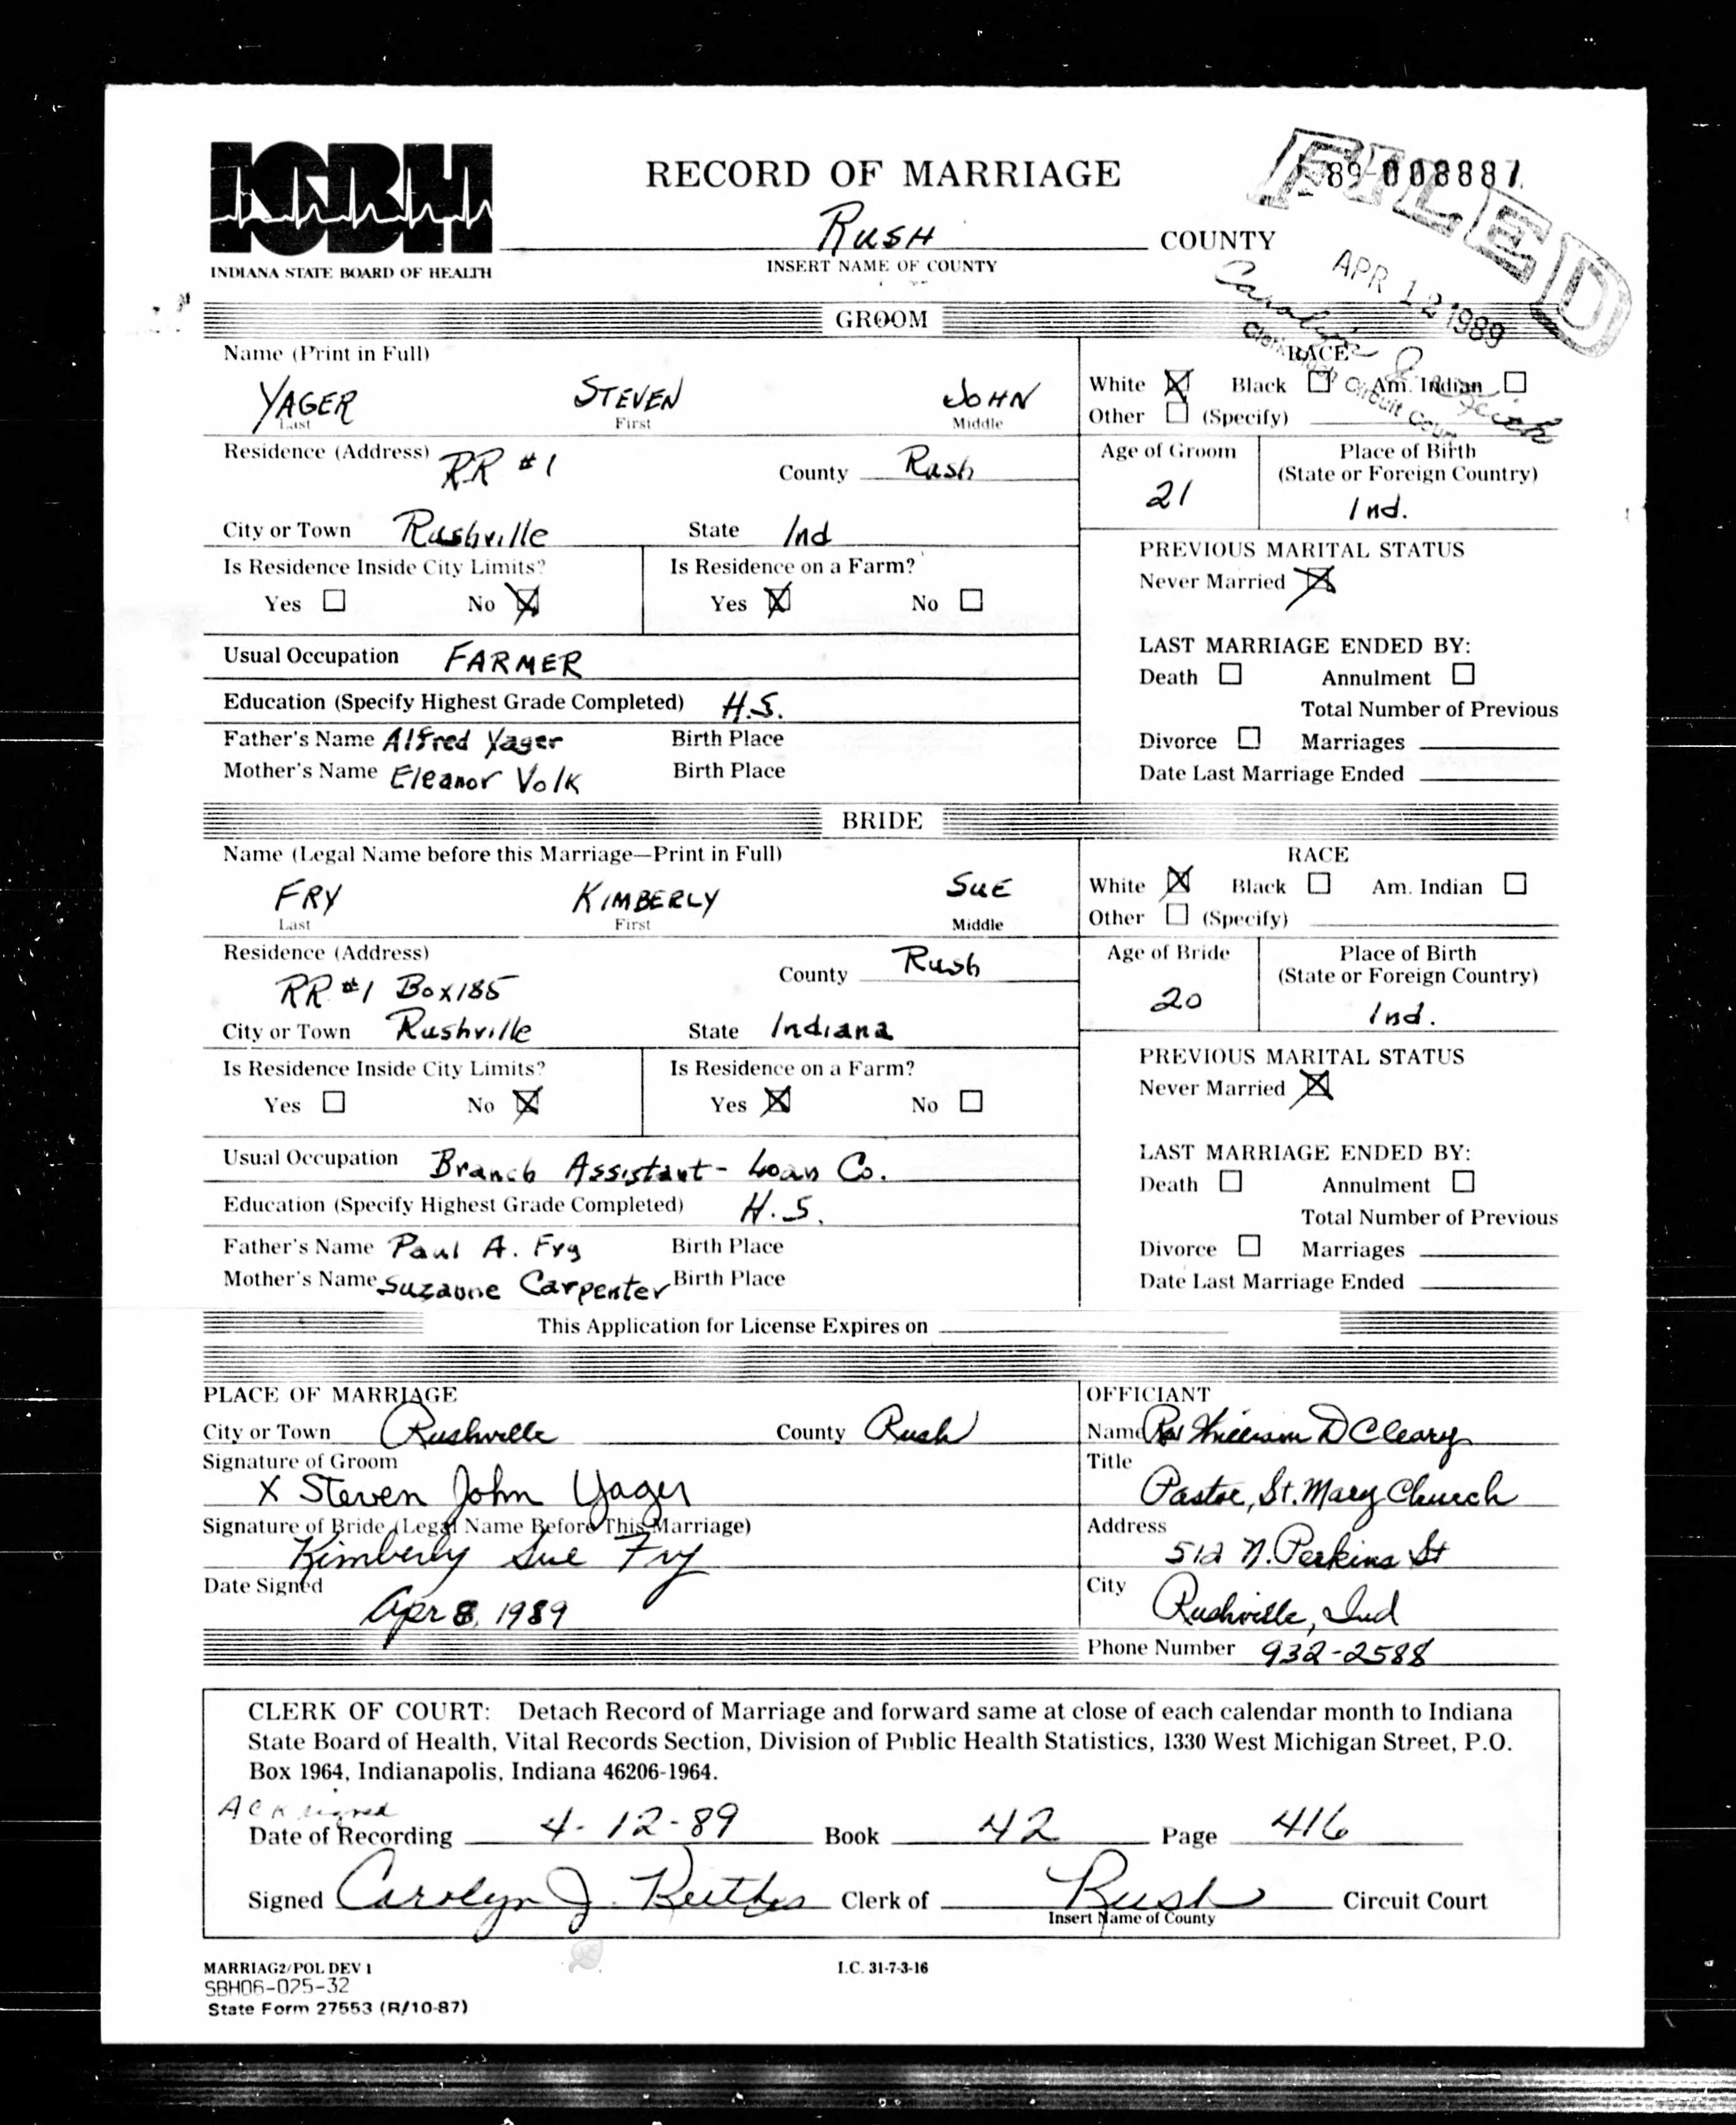 ISBH
INDIANA STATE BOARD OF HEALTH
RECORD OF MARRIAGE
89-008887
FILED
APR 12 1989
RUSH COUNTY
INSERT NAME OF COUNTY
Carolyn J.
Clerk Rush Circuit Court
GROOM
Name (Print in Full)
YAGER STEVEN JOHN
Last First Middle
RACE
White ☒ Black ☐ Am. Indian ☐
Other ☐ (Specify)
Residence (Address) RR #1 County Rush
Age of Groom 21
Place of Birth
(State or Foreign Country)
Ind.
City or Town Rushville State Ind
Is Residence Inside City Limits? Is Residence on a Farm?
Yes ☐ No ☒ Yes ☒ No ☐
PREVIOUS MARITAL STATUS
Never Married ☒
Usual Occupation FARMER
Education (Specify Highest Grade Completed) H.S.
Father's Name Alfred Yager Birth Place
Mother's Name Eleanor Volk Birth Place
LAST MARRIAGE ENDED BY:
Death ☐ Annulment ☐
Total Number of Previous
Divorce ☐ Marriages
Date Last Marriage Ended
BRIDE
Name (Legal Name before this Marriage—Print in Full)
FRY KIMBERLY SUE
Last First Middle
RACE
White ☒ Black ☐ Am. Indian ☐
Other ☐ (Specify)
Residence (Address) County Rush
RR #1 Box 185
Age of Bride 20
Place of Birth
(State or Foreign Country)
Ind.
City or Town Rushville State Indiana
Is Residence Inside City Limits? Is Residence on a Farm?
Yes ☐ No ☒ Yes ☒ No ☐
PREVIOUS MARITAL STATUS
Never Married ☒
Usual Occupation Branch Assistant - Loan Co.
Education (Specify Highest Grade Completed) H.S.
Father's Name Paul A. Fry Birth Place
Mother's Name Suzanne Carpenter Birth Place
LAST MARRIAGE ENDED BY:
Death ☐ Annulment ☐
Total Number of Previous
Divorce ☐ Marriages
Date Last Marriage Ended
This Application for License Expires on
PLACE OF MARRIAGE
City or Town Rushville County Rush
Signature of Groom
X Steven John Yager
Signature of Bride (Legal Name Before This Marriage)
Kimberly Sue Fry
Date Signed
Apr 8, 1989
OFFICIANT
Name Rev William D Cleary
Title
Pastor, St. Mary Church
Address
512 N. Perkins St
City
Rushville, Ind
Phone Number 932-2588
CLERK OF COURT: Detach Record of Marriage and forward same at close of each calendar month to Indiana
State Board of Health, Vital Records Section, Division of Public Health Statistics, 1330 West Michigan Street, P.O.
Box 1964, Indianapolis, Indiana 46206-1964.
ACK signed
Date of Recording 4-12-89 Book 42 Page 416
Signed Carolyn J. Clerk of Rush Circuit Court
Insert Name of County
MARRIAG2/POL DEV 1
I.C. 31-7-3-16
SBH06-025-32
State Form 27553 (R/10-87)